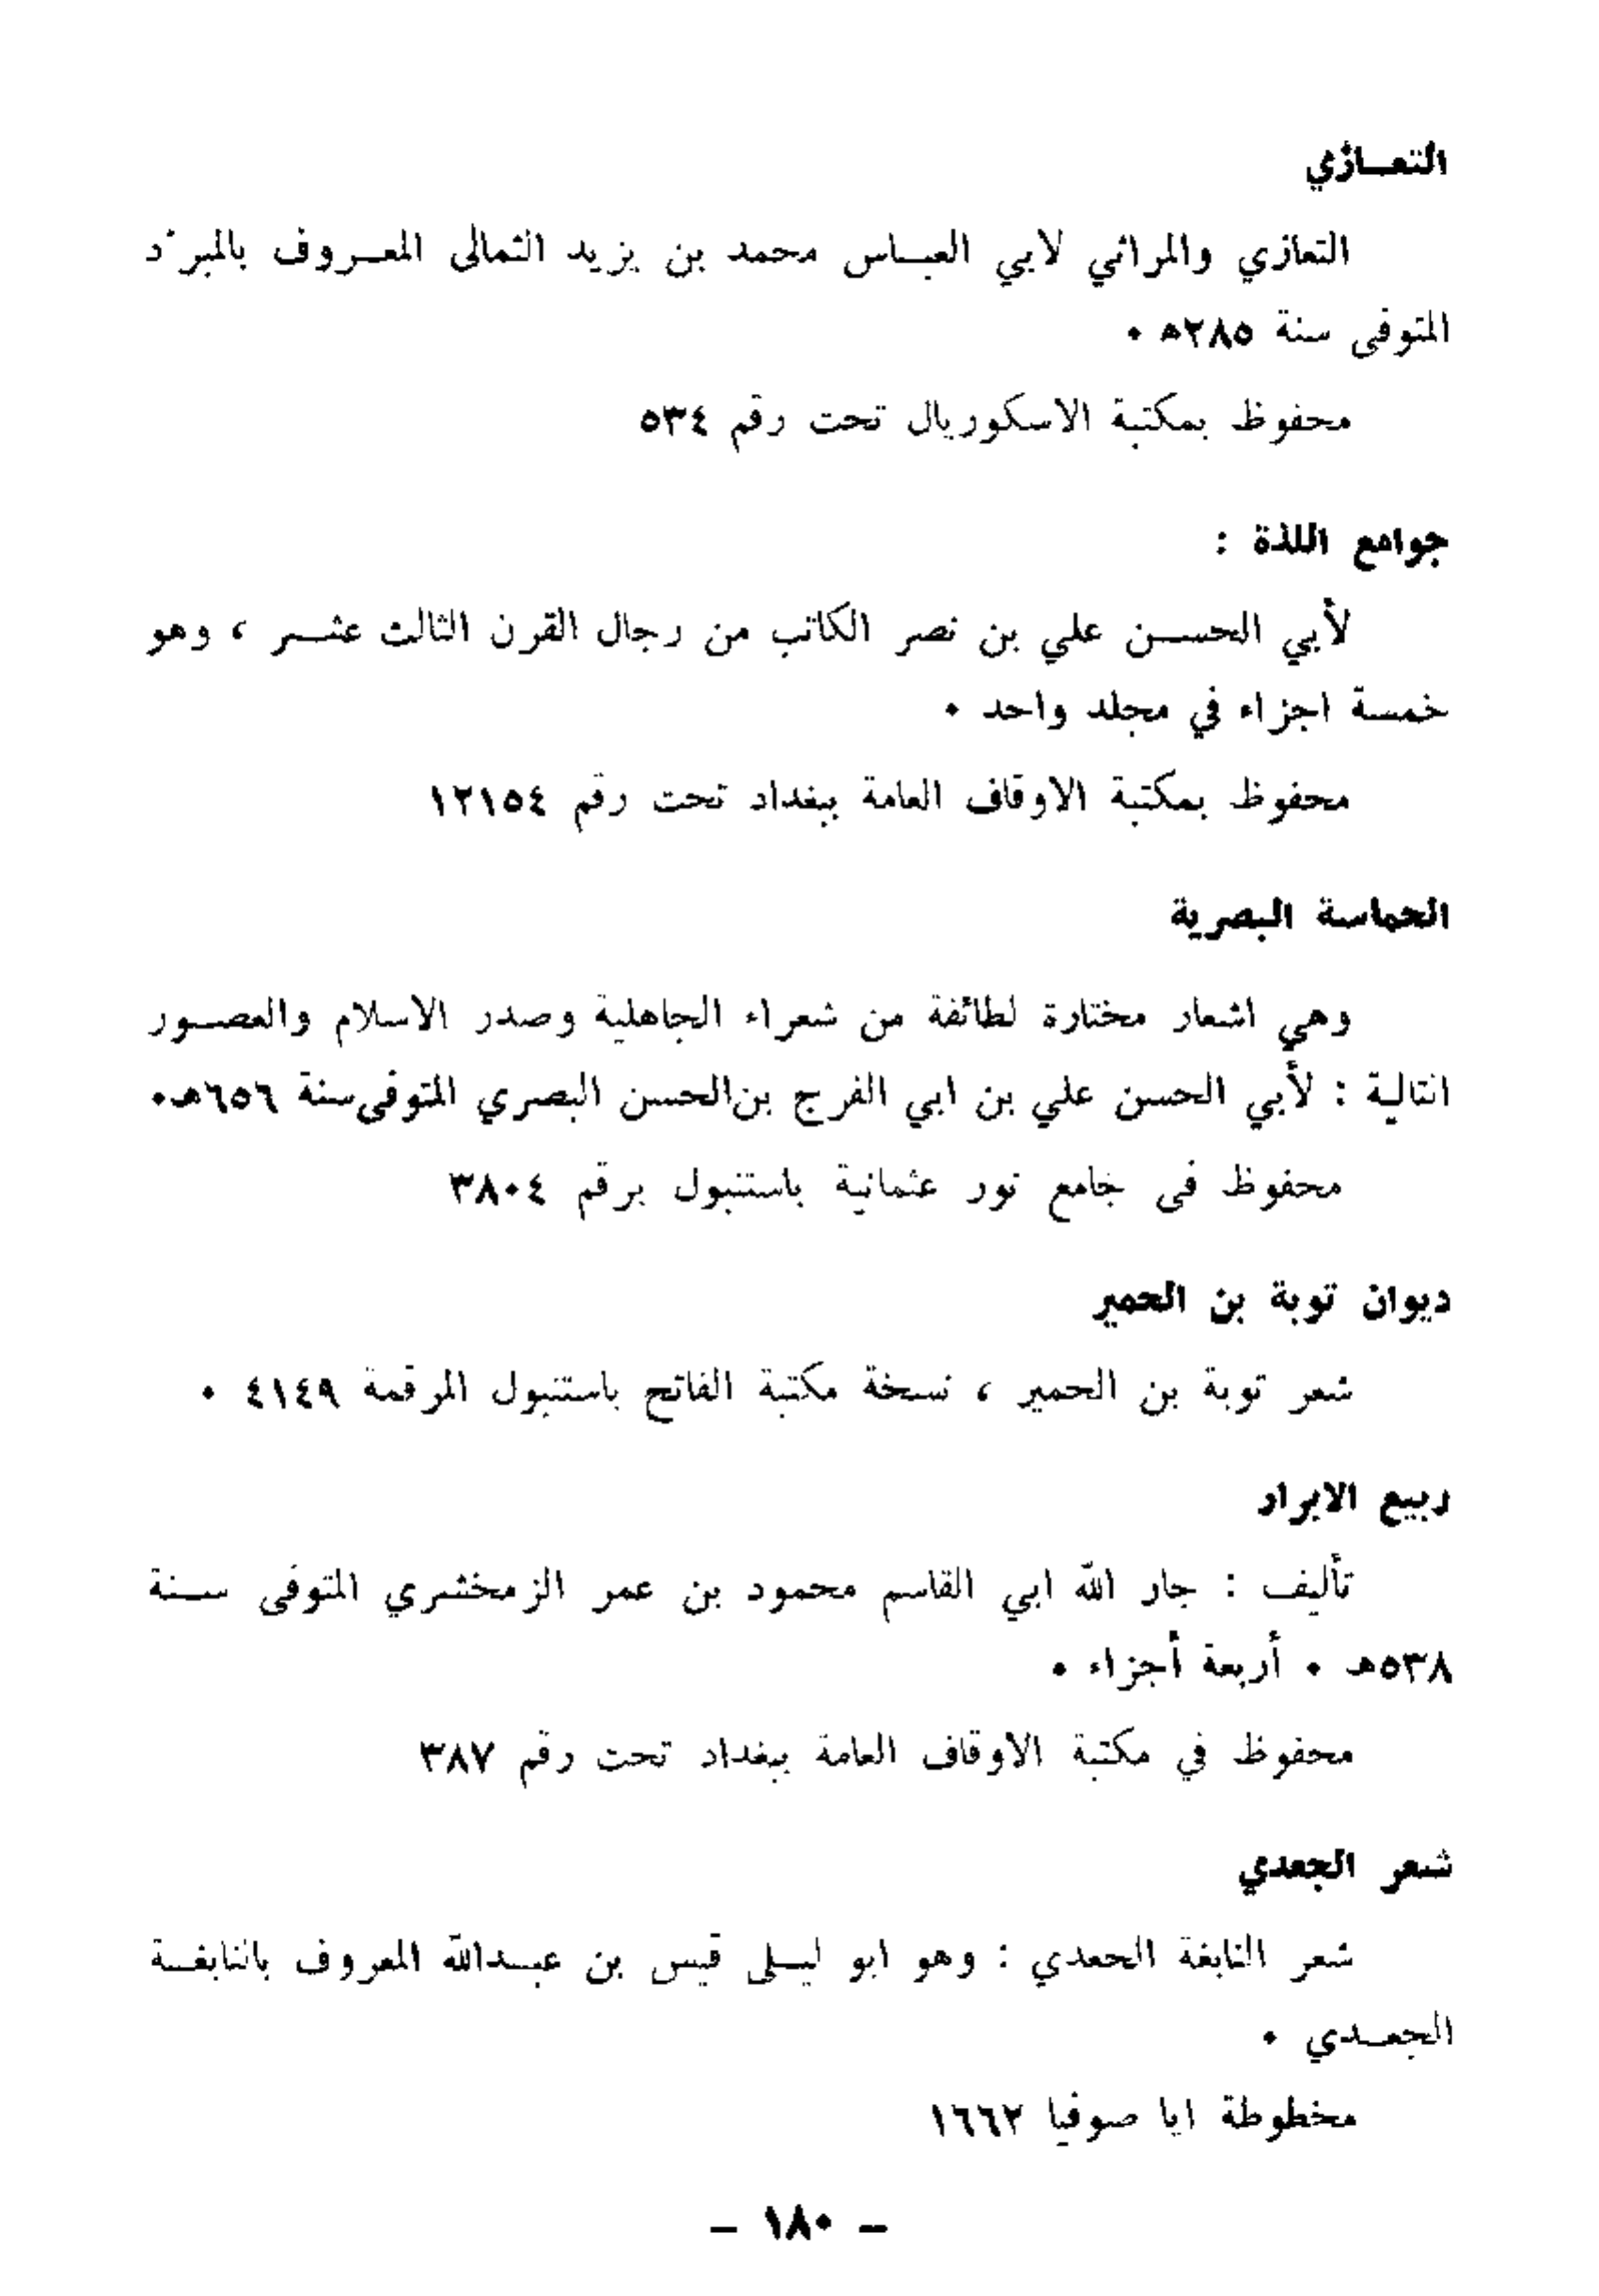 التعـازي
التعازي والمراثي لابي العبـاس محمد بن يزيد الثمالى المعـروف بالمبرّد
المتوفى سنة ٢٨٥هـ ٠
محفوظ بمكتبة الاسكوريال تحت رقم ٥٣٤
جوامع اللذة :
لأبي الحسـن علي بن نصر الكاتب من رجال القرن الثالث عشـر ، وهو
خمسة اجزاء في مجلد واحد ٠
محفوظ بمكتبة الاوقاف العامة ببغداد تحت رقم ١٢١٥٤
الحماسة البصرية
وهي اشعار مختارة لطائفة من شعراء الجاهلية وصدر الاسلام والعصـور
التالية : لأبي الحسن علي بن ابي الفرج بن‌الحسن البصري المتوفى‌سنة ٦٥٦هـ٠
محفوظ فى جامع نور عثمانية باستنبول برقم ٣٨٠٤
ديوان توبة بن الحمير
شعر توبة بن الحمير ، نسخة مكتبة الفاتح باستنبول المرقمة ٤١٤٩ ٠
ربيع الابرار
تأليف : جار الله ابي القاسم محمود بن عمر الزمخشري المتوفى سـنة
٥٣٨هـ ٠ أربعة أجزاء ٠
محفوظ في مكتبة الاوقاف العامة ببغداد تحت رقم ٣٨٧
شعر الجعدي
شعر النابغة الجعدي : وهو ابو ليـلى قيس بن عبـدالله المعروف بالنابغـة
الجعـدي ٠
مخطوطة ايا صوفيا ١٦٦٢
– ١٨٠ –